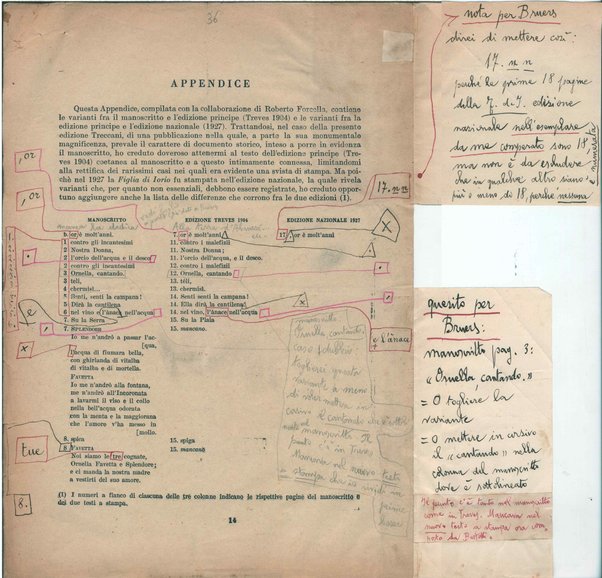 36
APPENDICE
Questa Appendice, compilata con la collaborazione di Roberto Forcella, contiene
le varianti fra il manoscritto e l'edizione principe (Treves 1904) e le varianti fra la
edizione principe e l'edizione nazionale (1927). Trattandosi, nel caso della presente
edizione Treccani, di una pubblicazione nella quale, a parte la sua monumentale
magnificenza, prevale il carattere di documento storico, inteso a porre in evidenza
il manoscritto, ho creduto doveroso attenermi al testo dell'edizione principe (Tre-
ves 1904) coetanea al manoscritto e a questo intimamente connessa, limitandomi
alla rettifica dei rarissimi casi nei quali era evidente una svista di stampa. Ma poi-
chè nel 1927 la Figlia di Iorio fu stampata nell'edizione nazionale, la quale rivela
varianti che, per quanto non essenziali, debbono essere registrate, ho creduto oppor-
tuno aggiungere anche la lista delle differenze che corrono fra le due edizioni (1).
, or
, or
17. n n
MANOSCRITTO
b. or è molt'anni.
1 contro gli incantesimi
2 Nostra Donna.
2 l'orcio dell'acqua e il desco
2 contro gli incantesimi
3 Ornella, cantando.
3 téli,
4 chermisi...
8 Senti, senti la campana!
5 Dirà la cantilena
6 nel vino e l'ànace nell'acqua
7. Su la Serra
7. SPLENDORE
Io me n'andrò a passar l'ac-
qua,
l'acqua di fiumara bella,
con ghirlanda di vitalba
di vitalba e di mortella.
FAVETTA
Io me n'andrò alla fontana,
me n'andrò all'Incoronata
a lavarmi il viso e il collo
nella bell'acqua odorata
con la menta e la maggiorana
che l'amore v'ha messo in
[mollo.
8. spica
8 FAVETTA
Noi siamo le tre cognate,
Ornella Favetta e Splendore;
e ci manda la nostra madre
a vestirti del suo amore.
EDIZIONE TREVES 1904
7. or è molt'anni.
11. contro i malefizii
11. Nostra Donna;
11. l'orcio dell'acqua, e il desco.
12. contro i malefizii
12. Ornella cantando
13. tèli
14. chermisi.
14. Senti senti la campana!
14. Ella dirà la cantilena!
14. nel vino, l'ànace nell'acqua
15. Su la Plaia
15. mancano.
15. spiga
15. mancano
EDIZIONE NAZIONALE 1927
17. or è molt'anni
x
e
x
e l'ànace
tue
8.
(1) I numeri a fianco di ciascuna delle tre colonne indicano le rispettive pagine del manoscritto e
dei due testi a stampa.
14
nota per Bruers
direi di mettere così:
17. n n
perché le prime 18 pagine
della F. d. I. edizione
nazionale nell'esemplare
da me comperato sono 18,
ma non è da escludere
che in qualche altro siano
più o meno di 18, perché nessuna
numerata
quesito per
Bruers:
manoscritto pag. 3:
"Ornella, cantando."
= O togliere la
variante
= O mettere in corsivo
il "cantando" nella
colonna del manoscritto
dove è sottolineato
Il punto c'è tanto nel manoscritto
come in Treves. Mancava nel
nuovo testo a stampa ora